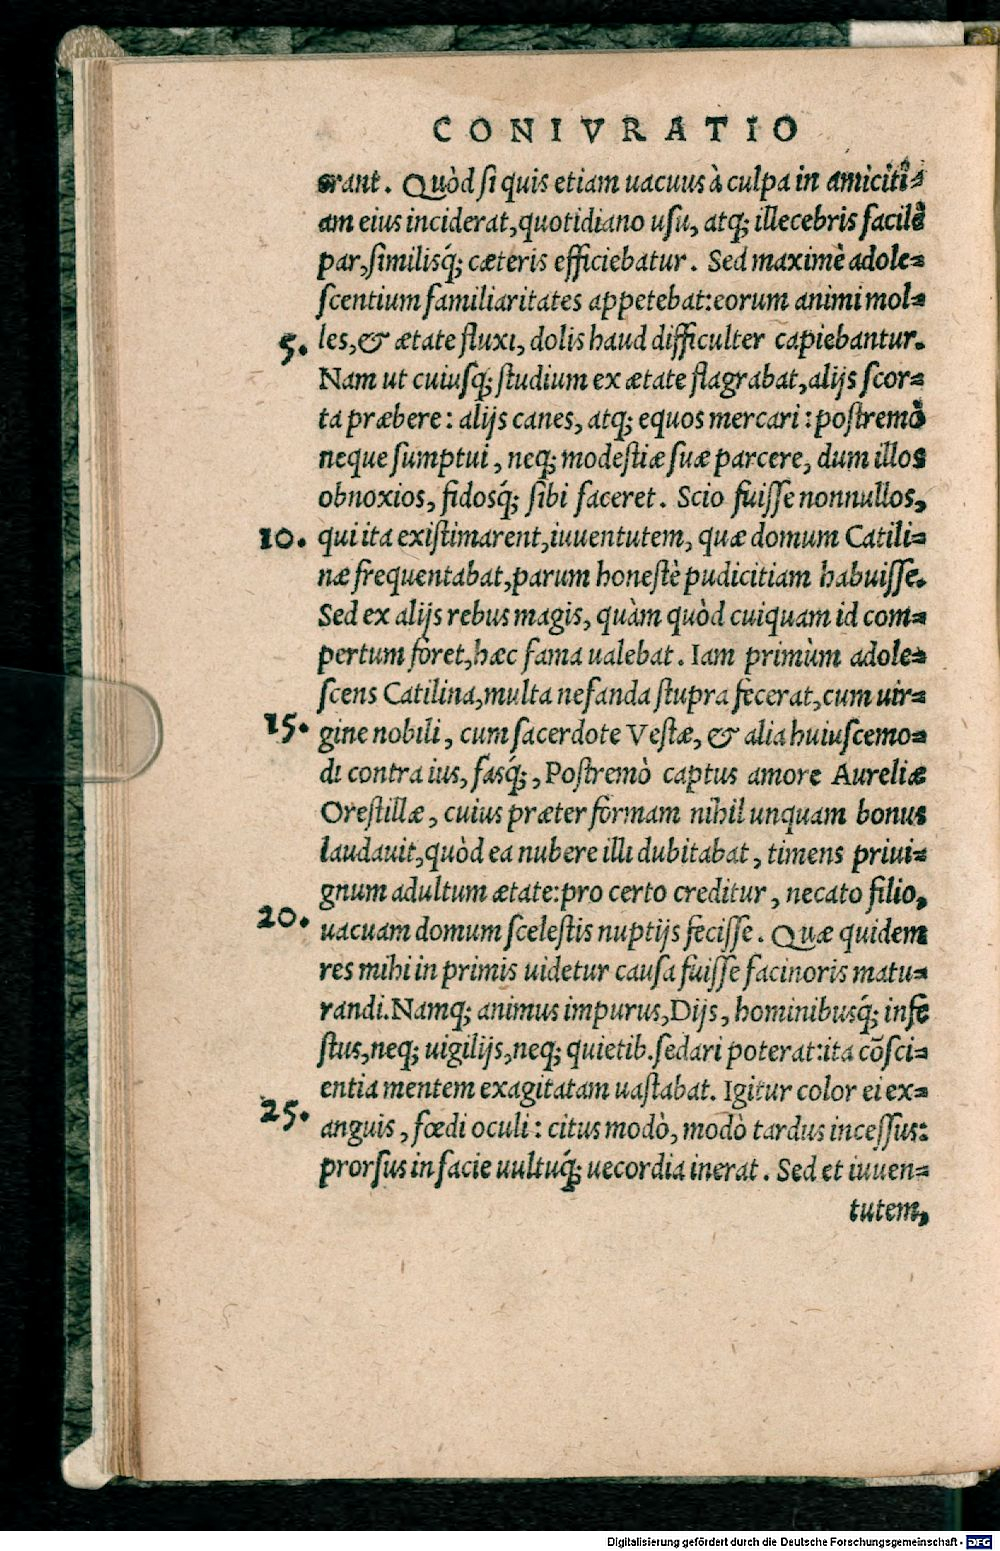 CONIVRATIO
erant. Quòd si quis etiam uacuus à culpa in amiciti-
am eius inciderat, quotidiano usu, atq; illecebris facilè
par, similisq́; cæteris efficiebatur. Sed maximè adole-
scentium familiaritates appetebat: eorum animi mol-
5. les, & ætate fluxi, dolis haud difficulter capiebantur.
Nam ut cuiusq; studium ex ætate flagrabat, alijs scor-
ta præbere: alijs canes, atq; equos mercari: postremò
neque sumptui, neq; modestiæ suæ parcere, dum illos
obnoxios, fidosq́; sibi faceret. Scio fuisse nonnullos,
10. qui ita existimarent, iuuentutem, quæ domum Catili-
næ frequentabat, parum honestè pudicitiam habuisse.
Sed ex alijs rebus magis, quàm quòd cuiquam id com-
pertum foret, hæc fama ualebat. Iam primùm adole-
scens Catilina, multa nefanda stupra fecerat, cum uir-
15. gine nobili, cum sacerdote Vestæ, & alia huiuscemo-
di contra ius, fasq́;, Postremò captus amore Aureliæ
Orestillæ, cuius præter formam nihil unquam bonus
laudauit, quòd ea nubere illi dubitabat, timens priui-
gnum adultum ætate: pro certo creditur, necato filio,
20. uacuam domum scelestis nuptijs fecisse. Quæ quidem
res mihi in primis uidetur causa fuisse facinoris matu-
randi. Namq; animus impurus, Dijs, hominibusq́; infe
stus, neq; uigilijs, neq; quietib. sedari poterat: ita cõsci-
entia mentem exagitatam uastabat. Igitur color ei ex-
25. anguis, fœdi oculi: citus modò, modò tardus incessus:
prorsus in facie uultuq́; uecordia inerat. Sed et iuuen-
tutem,
Digitalisierung gefördert durch die Deutsche Forschungsgemeinschaft - DFG